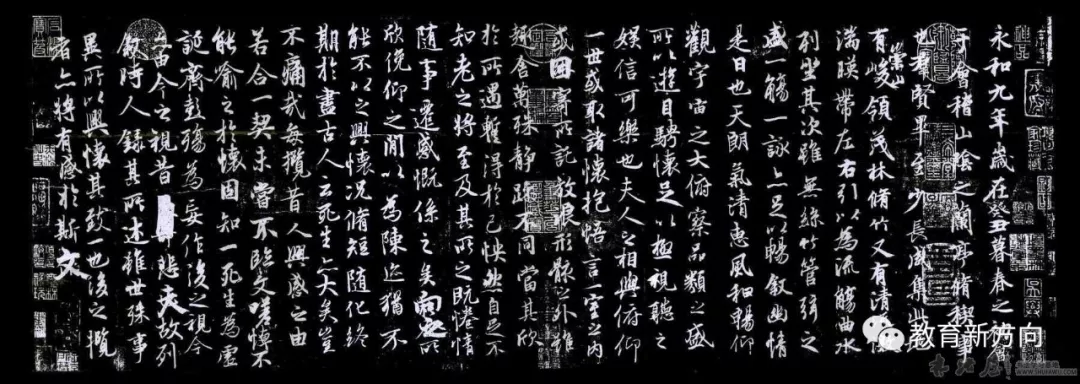 永和九年歲在癸丑暮春之初
于會稽山陰之蘭亭脩稧事
也羣賢畢至少長咸集此
有崇山峻領茂林脩竹又有清
湍暎帶左右引以為流觴曲水
列坐其次雖無絲竹管弦之
盛一觴一詠亦足以暢叙幽情
是日也天朗氣清惠風和暢仰
觀宇宙之大俯察品類之盛
所以遊目騁懷足以極視聽之
娛信可樂也夫人之相與俯仰
一世或取諸懷抱悟言一室之內
或因寄所託放浪形骸之外雖
趣舍萬殊靜躁不同當其欣
於所遇暫得於己怏然自足不
知老之將至及其所之既惓情
隨事遷感慨係之矣向之所
欣俛仰之閒以為陳迹猶不
能不以之興懷況脩短隨化終
期於盡古人云死生亦大矣豈
不痛哉每攬昔人興感之由
若合一契未嘗不臨文嗟悼不
能喻之於懷固知一死生為虛
誕齊彭殤為妄作後之視今
亦由今之視昔悲夫故列
敘時人錄其所述雖世殊事
異所以興懷其致一也後之攬
者亦將有感於斯文
教育新方向